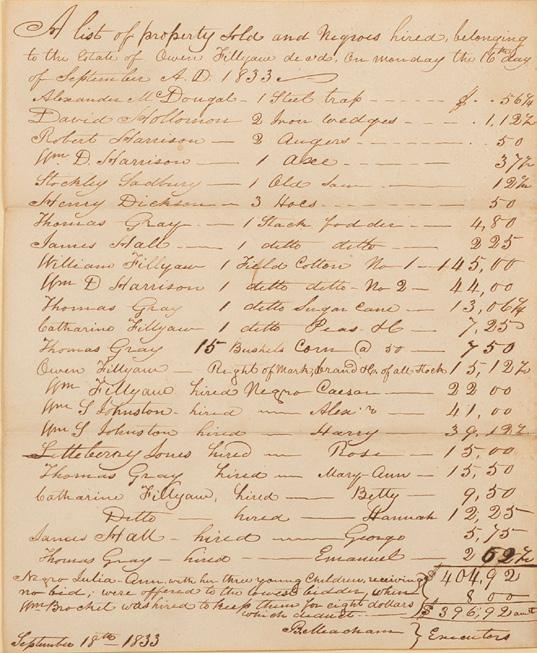 A list of property Sold and Negroes hired, belonging
to the Estate of Owen Fillyaw dec'd, On monday the 16th day
of September A.D. 1833
Alexander McDougal - 1 Steel trap - - - - - $ . 56¼
David Hollomon 2 Iron wedges - - - - . 1,12½
Robert Harrison — 2 Augers - - - - - 50
Wm D. Harrison — 1 Axe - - - - - 37½
Stockley Sadbury — 1 Old Saw - - - - 12½
Henry Dickson — 3 Hoes - - - - - 50
Thomas Gray — 1 Stack fodder - - - - 4,80
James Hall — 1 ditto ditto - - - - 2 25
William Fillyaw 1 Field Cotton No 1 — 145,00
Wm D Harrison 1 ditto ditto - No 2 — 44,00
Thomas Gray 1 ditto Sugar cane — 13,06¼
Catharine Fillyaw 1 ditto Peas &c — 7,25
Thomas Gray 15 Bushels Corn @ 50 — 7 50
Owen Fillyaw — Right of Mark, brand &c of all Stock 15,12½
Wm Fillyaw hired Negro Caesar — 22 00
Wm S Johnston - hired — — 41,00
Wm S Johnston hired — Harry — 39,12½
Litteberry Jones hired — Rose — 15,00
Thomas Gray hired — Mary-Ann — 15,50
Catharine Fillyaw, hired — Betty — 9,50
Ditto — hired — Hannah 12,25
James Hall - hired — George 5,75
Thomas Gray — hired — Emanuel — 2 62½
Negro Julia-Ann, with her three young Children, receiving $ 404,92
no bid; were offered to the lowest bidder, when 8 00
Wm Brocket was hired to keep them for eight dollars $ 396,92 amt
which deduct
B. Meacham } Executors
September 18th 1833